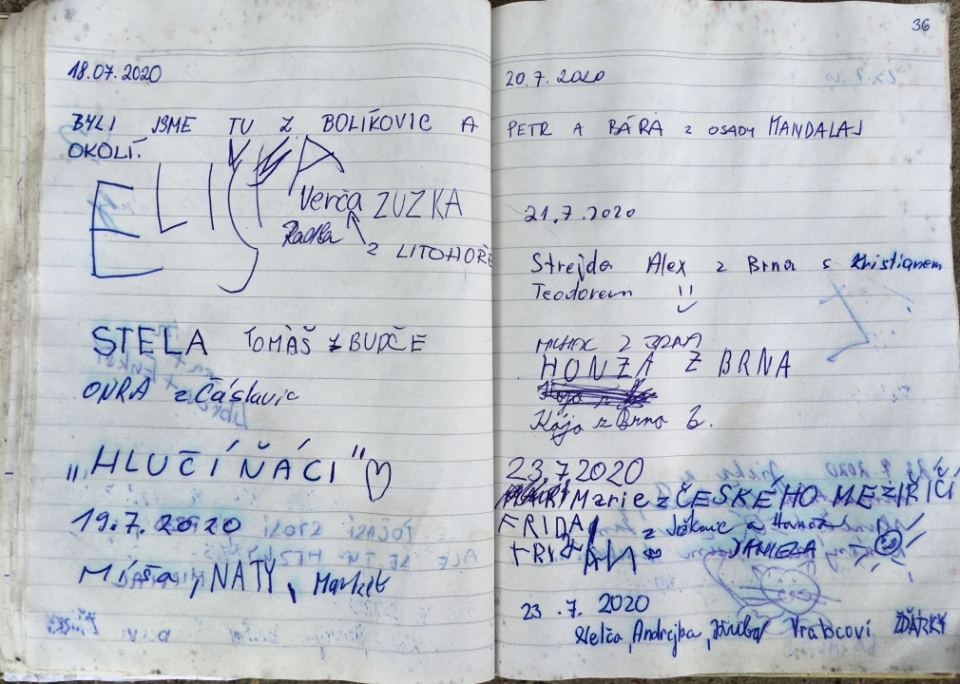 18.07.2020
BYLI JSME TU Z BOLÍKOVIC A
OKOLÍ.
Verča ZUZKA
Radka
Z LITOHOŘE
STELA TOMÁŠ Z BUDČE
ONRA z Čáslavic
„HLUČÍŇÁCI"
19.7.2020
Míša, NATY, Markét
36
20.7.2020
PETR A BÁRA z OSADY MANDALAJ
21.7.2020
Strejda Alex z Brna s Kristianem
Teodorem
Z BRNA
HONZA Z BRNA
Kája z Brna
23.7.2020
Marie z ČESKÉHO MEZIŘÍČÍ
FRIDA z
DANIELA
23.7.2020
Andrejka, Vrabcovi ŽĎÁRKY